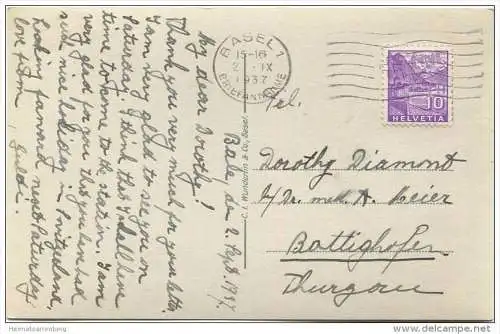 Basel, den 2. Sept. 1937.
My dear Dorothy!
Thank you very much for your letter.
I am very glad to see you on
Saturday. I think that I shall have
time to come to the station. I am
very glad for you that you can had
such nice holiday in Switzerland.
Looking forward next Saturday.
love from
C. I. Wunderlin & Co., Basel
BASEL 1
15-16
2. IX
1937
BRIEFANNAHME
10
HELVETIA
Tel.
Dorothy Diamont
c/ Dr. med. A. Meier
Bottighofen
Thurgau
Heimatsammlung